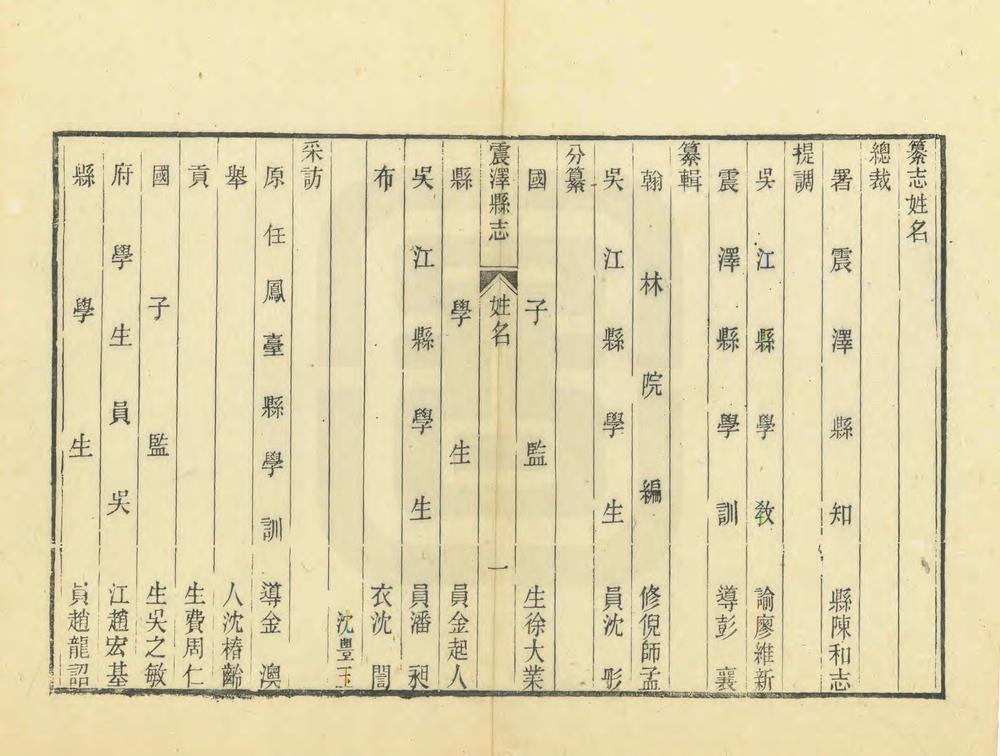 纂志姓名
總裁
署震澤縣知縣陳和志
提調
吳江縣學教諭廖維新
震澤縣學訓導彭襄
纂輯
翰林院編修倪師孟
吳江縣學生員沈彤
分纂
國子監生徐大業
震澤縣志 姓名 一
縣學生員金起人
吳江縣學生員潘昶
布衣沈誾
沈豐玉
采訪
原任鳳臺縣學訓導金澳
舉人沈椿齡
貢生費周仁
國子監生吳之敏
府學生員吳江趙宏基
縣學生員趙龍詔